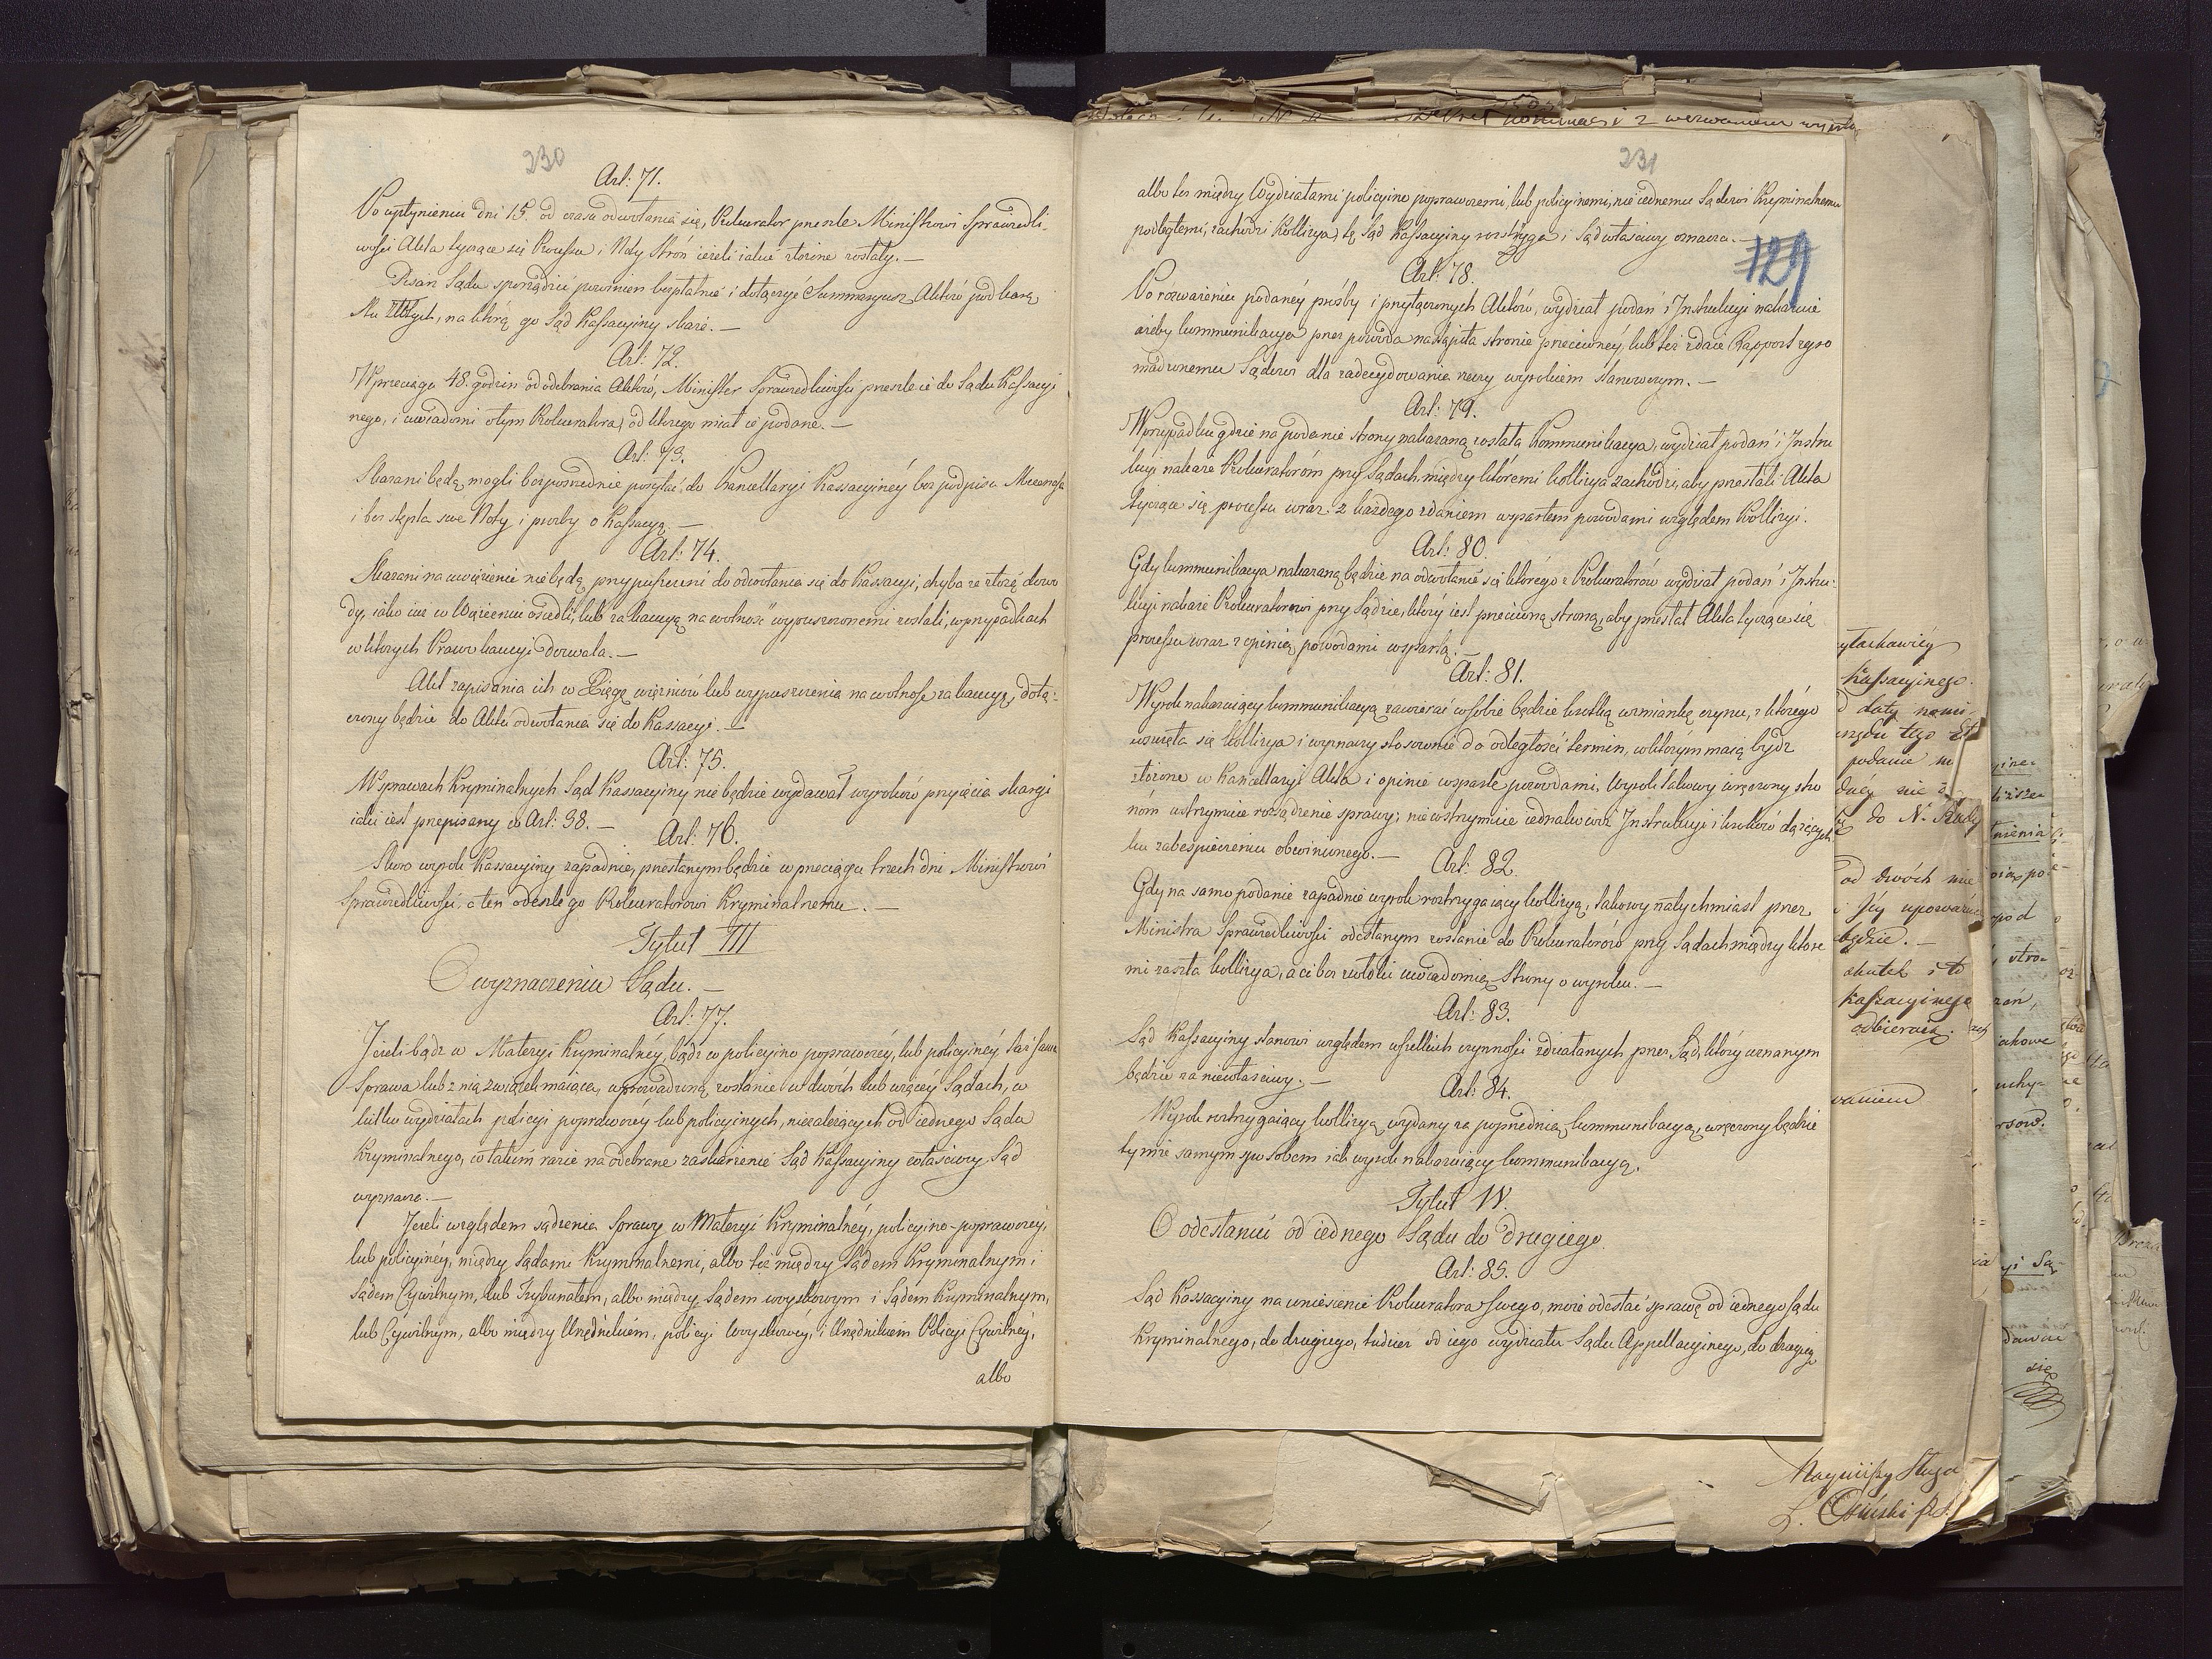 230
Art: 71.
Po upłynieniu dni 15. od czasu odwołania się, Prokurator prześle Ministrowi Sprawiedli-
wości Akta tyczące się Processu i Noty Stron ieżeli iakie złożone zostały. —
Pisarz Sądu sporządzić powinien bezpłatnie i dołączyć Summaryusz Aktów pod karą
Stu Złłtych, na którą go Sąd Kassacyiny skaże. —
Art: 72.
W przeciągu 48. godzin od odebrania Aktów, Minister Sprawiedliwości prześle ie do Sądu Kassacyi
nego, i uwiadomi o tym Prokuratora, od którego miał ie podane. —
Art: 73.
Skazani będą mogli bezpośrednie posyłać do Kancellaryi Kassacyinéy bez podpisu Mecenasa
i bez stępla swe Noty i prozby o Kassacyą. —
Art: 74.
Skazani na uwięzienie nie będą przypuszczeni do odwołania się do Kassacyi, chyba ze złożą dowo
dy, iako iuż w Więzieniu osiedli, lub za kaucyą na wolność wypuszczonemi zostali, w przypadkach
w których Prawo kaucyi dozwala. —
Akt zapisania ich w Xięgę więzniów lub wypuszczenia na wolność za kaucyą, dołą-
czony będzie do Aktu odwołania się do Kassacyi. —
Art: 75.
W sprawach Kryminalnych Sąd Kassacyiny nie będzie wydawał wyroków przyięcia skargi
iaki iest przepisany w Art: 38. —
Art: 76.
Skoro wyrok Kassacyiny zapadnie, przesłanym będzie w przeciągu trzech dni Ministrowi
Sprawiedliwości, a ten odeszle go Prokuratorowi Kryminalnemu. —
Tytuł III
O wyznaczeniu Sądu. —
Art: 77.
Jeżeli bądz w Materyi Kryminalnéy, bądz w policyino poprawczéy, lub policyinéy taż sama
Sprawa lub z nią związek maiąca, wprowadzoną zostanie w dwóch lub więcéy Sądach, w
kilku wydziałach policyi poprawczéy lub policyinych, niezależących od iednego Sądu
Kryminalnego, w takim razie na odebrane zaskarżenie Sąd Kassacyiny właściwy Sąd
wyznacza. —
Jeżeli względem sądzenia Sprawy w Materyi Kryminalnéy, policyino-poprawczéy,
lub policyinéy, między Sądami Kryminalnemi, albo też między Sądem Kryminalnym i
Sądem Cywilnym, lub Trybunałem, albo między Sądem woyskowym i Sądem Kryminalnym,
lub Cywilnym, albo między Urzędnikiem, policyi woyskowéy, i Urzędnikiem Policyi Cywilnéy,
albo
231
albo też między Wydziałami policyino poprawczemi, lub policyinemi, nie iednemu Sądowi Kryminalnemu
podległemi, zachodzi Kollizya, tę Sąd Kassacyiny rozstrzyga i Sąd właściwy oznacza. —
129
Art: 78.
Po rozważeniu podanéy prośby i przyłączonych Aktów, wydział podań i Instrukcyi nakazuie
ażeby kommunikacya przez powoda nastąpiła stronie przeciwnéy, lub też zdaie Rapport zgro
madzonemu Sądowi dla zadecydowania rzeczy wyrokiem stanowczym. —
Art: 79.
W przypadku gdzie na podanie strony nakazaną została Kommunikacya, wydział podań i Instru
kcyi nakaże Prokuratoróm przy Sądach, między któremi kollizya zachodzi, aby przesłali Akta
tyczące się processu wraz z każdego zdaniem wspartem powodami względem Kollizyi.
Art: 80.
Gdy kommunikacya nakazaną będzie na odwołanie się którego z Prokuratorów wydział podań i Instru-
kcyi nakaże Prokuratorowi przy Sądzie, który iest przeciwną stroną, aby przesłał Akta tyczące się
processu wraz z opinią powodami wspartą. —
Art: 81.
Wyrok nakazuiący kommunikacyą zawierać w sobie będzie krótką wzmiankę czynu, z którego
wszczęła się kollizya i wyznaczy stosownie do odległości termin, w którym maią bydz
złożone w Kancellaryi Akta i opinie wsparte powodami, Wyrok takowy wręczony stro
nóm wstrzymuie rozsądzenie sprawy; nie wstrzymuie iednakowoż Instrukcyi i kroków dążących
ku zabespieczeniu obwinionego. —
Art: 82.
Gdy na samo podanie zapadnie wyrok roztrzygaiący kollizyą, takowy natychmiast przez
Ministra Sprawiedliwości odesłanym zostanie do Prokuratorów przy Sądach między które
mi zaszła kollizya, a ci bez zwłoki uwiadomią Strony o wyroku. —
Art: 83.
Sąd Kassacyiny stanowi względem wszelkich czynności zdziałanych przez Sąd, który uznanym
będzie za niewłaściwy. —
Art: 84.
Wyrok roztrzygaiący kollizyą wydany za poprzednią kommunikacyą, wręczony będzie
tymże samym sposobem iak wyrok nakazuiący kommunikacyą.
Tytuł IV.
O odesłaniu od iednego Sądu do drugiego.
Art: 85.
Sąd Kassacyiny na wniesienie Prokuratora swego, może odesłać sprawę od iednego Sądu
Kryminalnego, do drugiego, tudzież od iego wydziału Sądu Appellacyinego, do drugiego
Kassacyinego.
podanie
do N.
od dwóch
będzie. —
Kassacyinego
odbieraią.